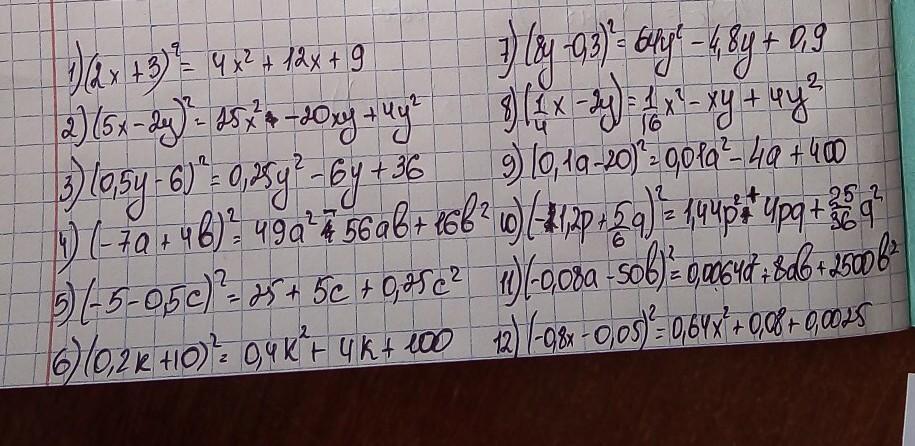 1) (2x + 3)² = 4x² + 12x + 9
2) (5x - 2y)² = 25x² - 20xy + 4y²
3) (0,5y - 6)² = 0,25y² - 6y + 36
4) (-7a + 4b)² = 49a² - 56ab + 16b²
5) (-5 - 0,5c)² = 25 + 5c + 0,25c²
6) (0,2k + 10)² = 0,4k² + 4k + 100
7) (8y - 0,3)² = 64y² - 4,8y + 0,9
8) (1/4x - 2y) = 1/16x² - xy + 4y²
9) (0,1a - 20)² = 0,01a² - 4a + 400
10) (-1,2p + 5/6q)² = 1,44p² + 4pq + 25/36q²
11) (-0,08a - 50b)² = 0,0064a² + 8ab + 2500b²
12) (-0,8x - 0,05)² = 0,64x² + 0,08 + 0,0025